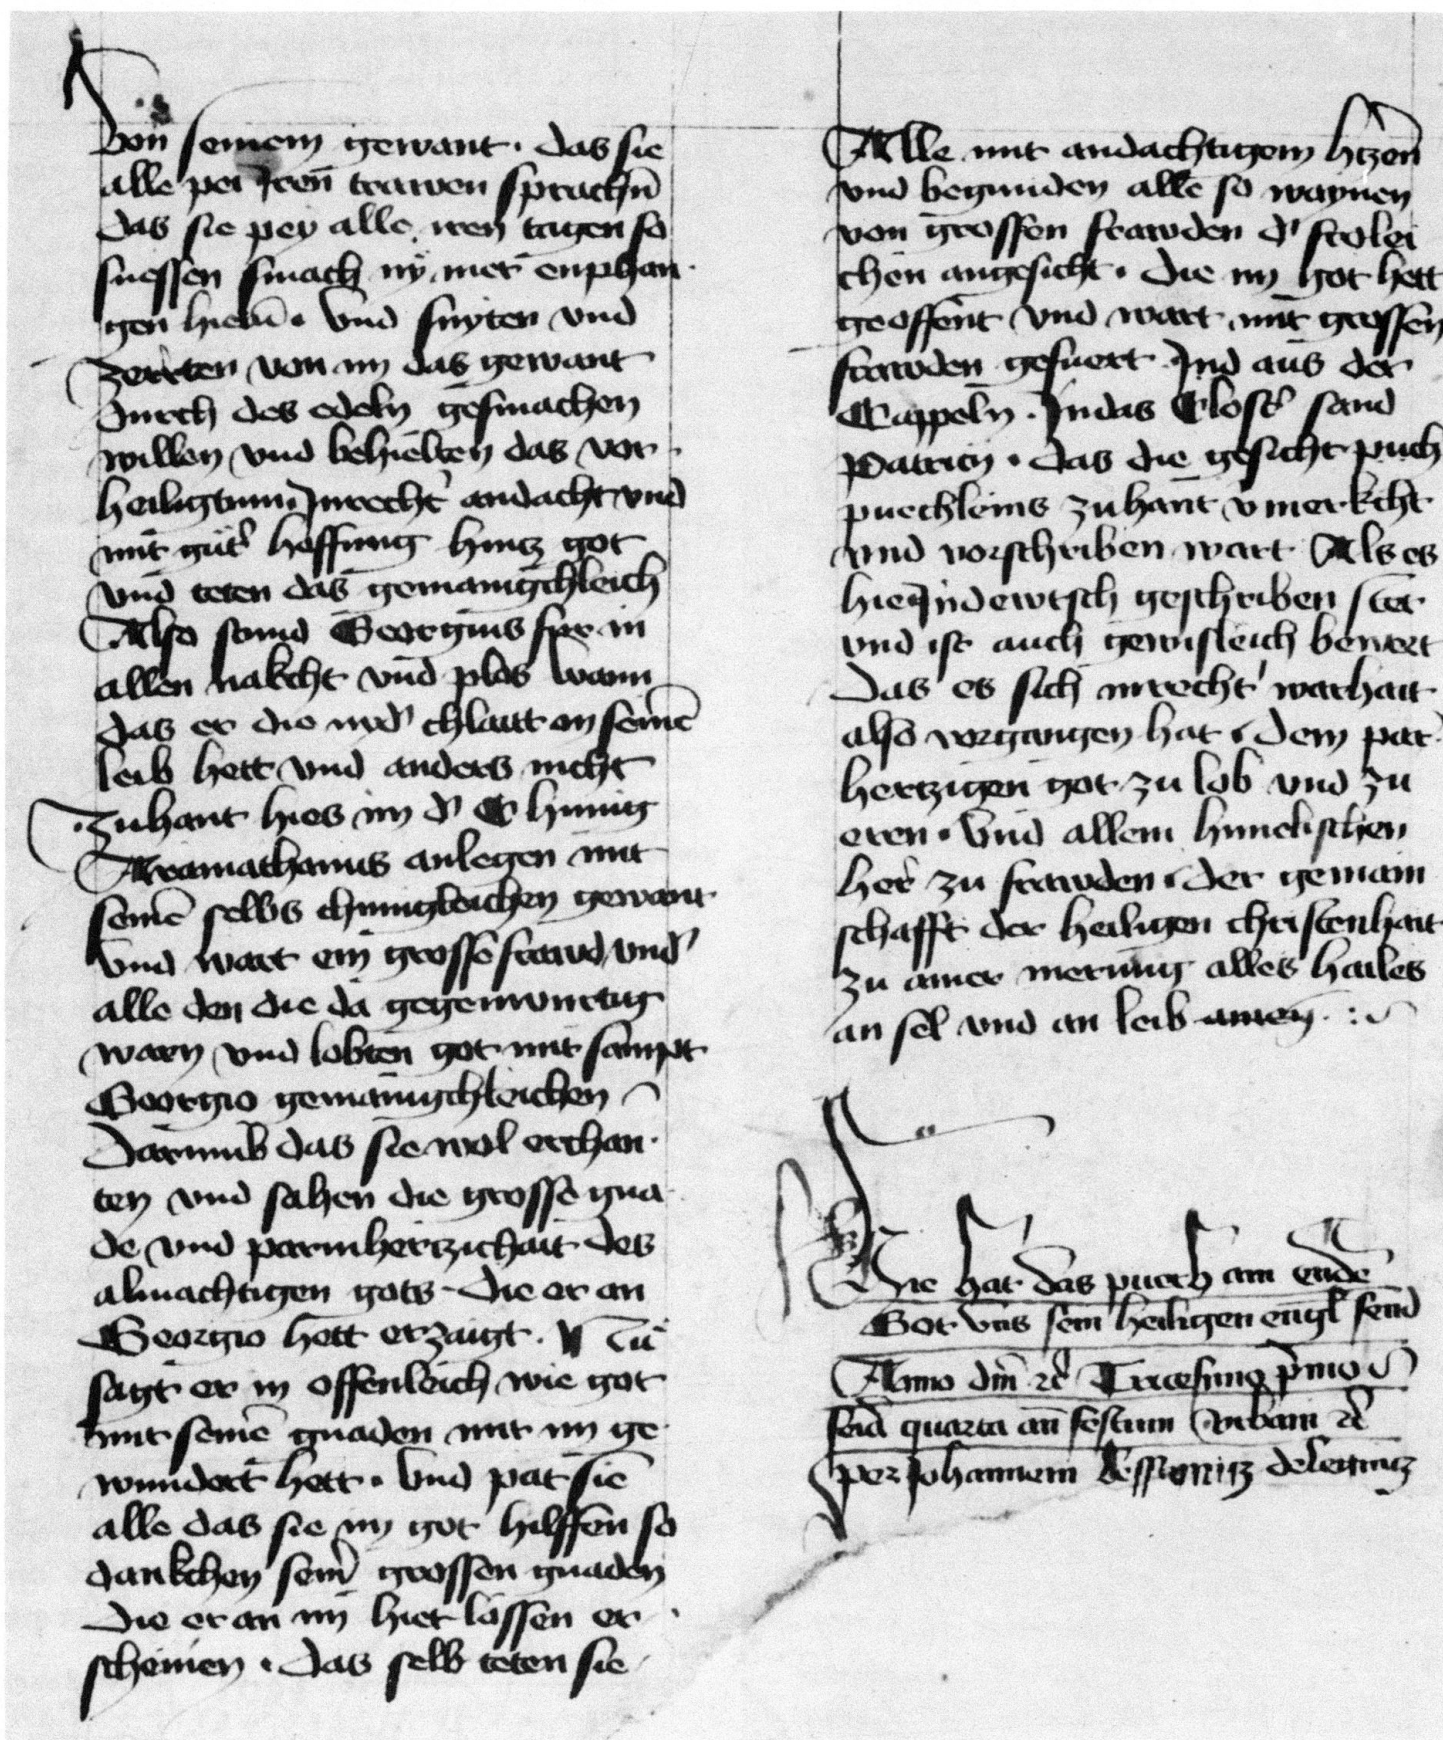 von seinem gewant · das sie
alle pei Iren trawen sprachn̄
das sie pey alle iren tagen so
suessen smach ny mer enphan
gen hietn̄ · Vnd snyten vnd
zerrten von im das gewant
durch des edeln gesmachen
willen vnd behielten das vor
heiligtum Inrecht' andacht vnd
mit gut' hoffnung hintz got
vnd teten das gemainigchleich
Also stund Georgius vor in
allen nakcht vnd plos wann
das er die nyd' chlaitt an seinē
leib hett vnd anders nicht
zuhant hies im d' Chunig
anlegen mit
seinē selbs chunigleichen gewant
Vnd wart ein grosse frawd vnd'
alle den die da gegenwurtig
warn vnd lobten got mit sampt
Georgio gemainigchleichen
Darumb das sie wol erchan
ten vnd sahen die grosse gna
de vnd parmhertzichait des
almachtigen gots · die er an
Georgio hett erzaigt · Nu
sagt er in offenleich wie got
mit seinē gnaden mit im ge
wundert hett · Vnd pat sie
alle das sie im got hilffen so
dankchen sein' grossen gnaden
die er an im hiet lassen er
scheinen · das selb teten sie
Alle mit andachtigem htzen̄
vnd begunden alle so waynen
von grossen frawden d' frolei
chen angesicht · die im got hett
geoffent vnd wart mit grossen
frawden gefuert Ind aus der
Cappeln · Indas Clost' sand
Patricy · das die gesicht puch
puechleins zuhant vmerkcht
vnd vorschriben wart Als es
hie Indewtsch geschriben stet
vnd ist auch gewisleich bewert
Das es sich inrecht' warhait
also vorgangen hat · dem par
hertzigen got zu lob vnd zu
eren · Vnd allem himelischen
her zu frawden · der gemain
schafft der heiligen christenhait
zu ainer merung alles hailes
an sel vnd an leib amen ·
Hie hat das puech am ende
Got vns sein heiligen engl send
Anno dm̄ rc' Tricesimo p̄mo
feria quarta an̄ festum Vrbani rc'
per Johannem de